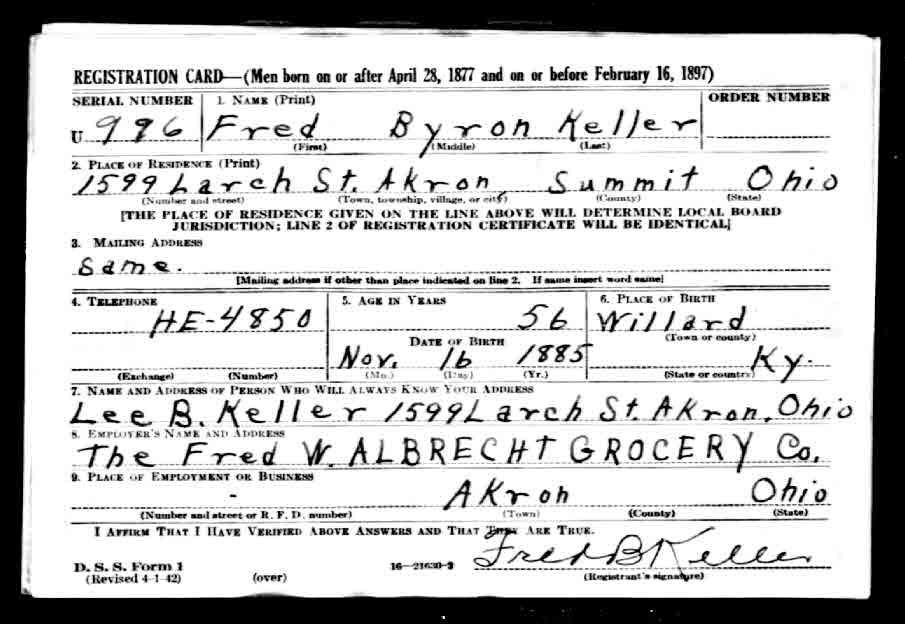 REGISTRATION CARD—(Men born on or after April 28, 1877 and on or before February 16, 1897)
SERIAL NUMBER 1. NAME (Print) ORDER NUMBER
U 996 Fred Byron Keller
(First) (Middle) (Last)
2. PLACE OF RESIDENCE (Print)
1599 Larch St. Akron, Summit Ohio
(Number and street) (Town, township, village, or city) (County) (State)
[THE PLACE OF RESIDENCE GIVEN ON THE LINE ABOVE WILL DETERMINE LOCAL BOARD
JURISDICTION; LINE 2 OF REGISTRATION CERTIFICATE WILL BE IDENTICAL]
3. MAILING ADDRESS
Same.
[Mailing address if other than place indicated on line 2. If same insert word same]
4. TELEPHONE 5. AGE IN YEARS 6. PLACE OF BIRTH
HE-4850 56 Willard
(Town or county)
DATE OF BIRTH
Nov. 16 1885 Ky.
(Exchange) (Number) (Mo.) (Day) (Yr.) (State or country)
7. NAME AND ADDRESS OF PERSON WHO WILL ALWAYS KNOW YOUR ADDRESS
Lee B. Keller 1599 Larch St. Akron, Ohio
8. EMPLOYER'S NAME AND ADDRESS
The Fred W. ALBRECHT GROCERY Co.
9. PLACE OF EMPLOYMENT OR BUSINESS
- Akron Ohio
(Number and street or R. F. D. number) (Town) (County) (State)
I AFFIRM THAT I HAVE VERIFIED ABOVE ANSWERS AND THAT THEY ARE TRUE.
Fred B Keller
D. S. S. Form 1
(Revised 4-1-42) (over) 16—21630-2 (Registrant's signature)